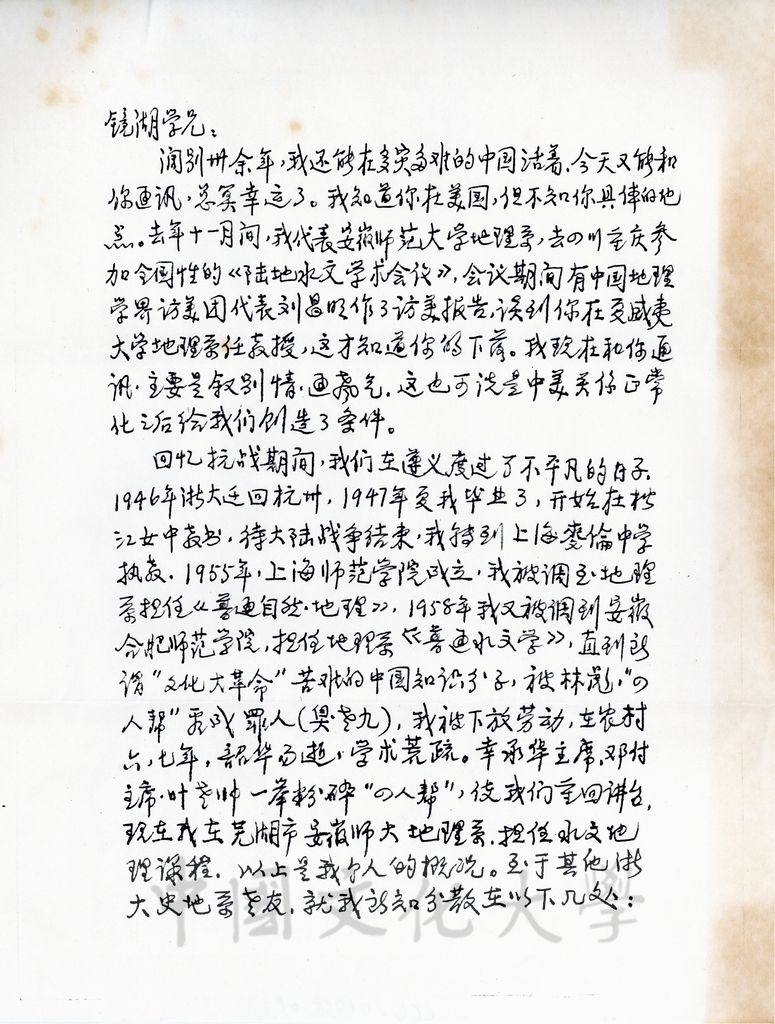 镜湖学兄：
阔别卅余年，我还能在多灾多难的中国活着，今天又能和
你通讯，总算幸运了。我知道你在美国，但不知你具体的地
点。去年十一月间，我代表安徽师范大学地理系，去四川重庆参
加全国性的《陆地水文学术会议》，会议期间有中国地理
学界访美团代表刘昌明作了访美报告，谈到你在夏威夷
大学地理系任教授，这才知道你的下落。我现在和你通
讯，主要是叙别情，通声气，这也可说是中美关系正常
化之后给我们创造了条件。
回忆抗战期间，我们在遵义度过了不平凡的日子，
1946年浙大迁回杭州，1947年夏我毕业了，开始在杭
江女中教书，待大陆战争结束，我转到上海麦伦中学
执教，1955年，上海师范学院成立，我被调至地理
系担任《普通自然地理》，1958年我又被调到安徽
合肥师范学院，担任地理系《普通水文学》，直到所
谓"文化大革命"苦难的中国知识分子，被林彪，"四
人帮"看成罪人(臭老九)，我被下放劳动，在农村
六，七年，韶华易逝，学术荒疏。幸承华主席，邓付
主席，叶老帅一举粉碎"四人帮"，使我们重回讲台，
现在我在芜湖市安徽师大地理系，担任水文地
理课程，以上是我个人的概况。至于其他浙
大史地系老友，就我所知分散在以下几处：
中國文化大學